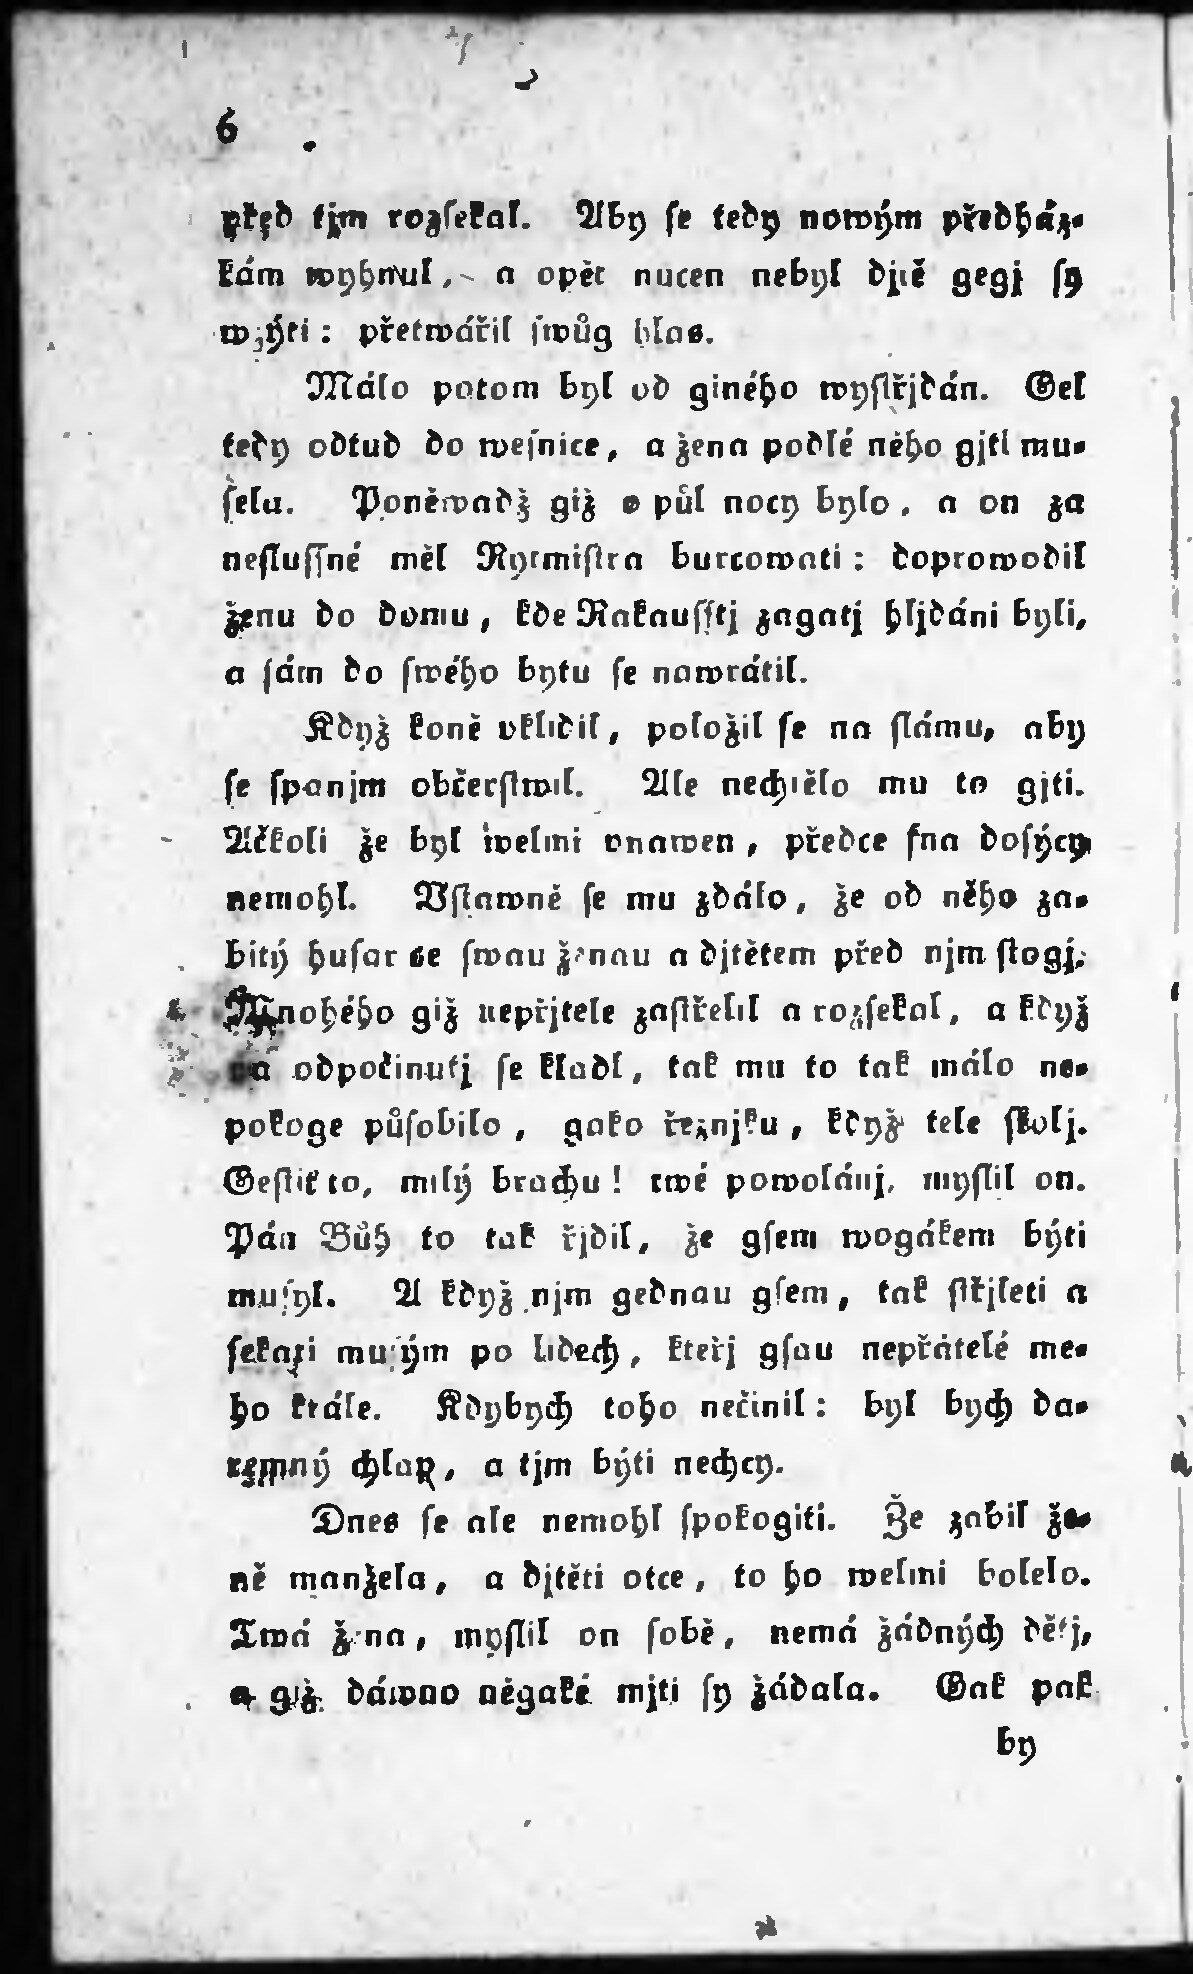 6
před tjm rozsekal. Aby se tedy nowým předház-
kám wyhnul, a opět nucen nebyl djtě gegj sy
wzýti: přetwářil swůg hlas.
Málo potom byl od giného wystřjdán. Gel
tedy odtud do wesnice, a žena podlé něho gjti mu-
sela. Poněwadž giž o půl nocy bylo, a on za
neslussné měl Rytmistra burcowati: doprowodil
ženu do domu, kde Rakausstj zagatj hljdáni byli,
a sám do swého bytu se nawrátil.
Když koně vklidil, položil se na slámu, aby
se spanjm občerstwil. Ale nechtělo mu to gjti.
Ačkoli že byl welmi vnawen, předce sna dosýcy
nemohl. Vstawně se mu zdálo, že od něho za-
bitý husar se swau ženau a djtětem před njm stogj.
Mnohého giž nepřjtele zastřelil a rozsekal, a když
na odpočinutj se kladl, tak mu to tak málo ne-
pokoge působilo, gako řeznjku, když tele skolj.
Gestiť to, milý brachu! twé powolánj, myslil on.
Pán Bůh to tak řjdil, že gsem wogákem býti
musyl. A když njm gednau gsem, tak střjleti a
sekati musým po lidech, kteřj gsau nepřátelé me-
ho krále. Kdybych toho nečinil: byl bych da-
remný chlap, a tjm býti nechcy.
Dnes se ale nemohl spokogiti. Že zabil že-
ně manžela, a djtěti otce, to ho welmi bolelo.
Twá žena, myslil on sobě, nemá žádných dětj,
a giž dáwno něgaké mjti sy žádala. Gak pak
by